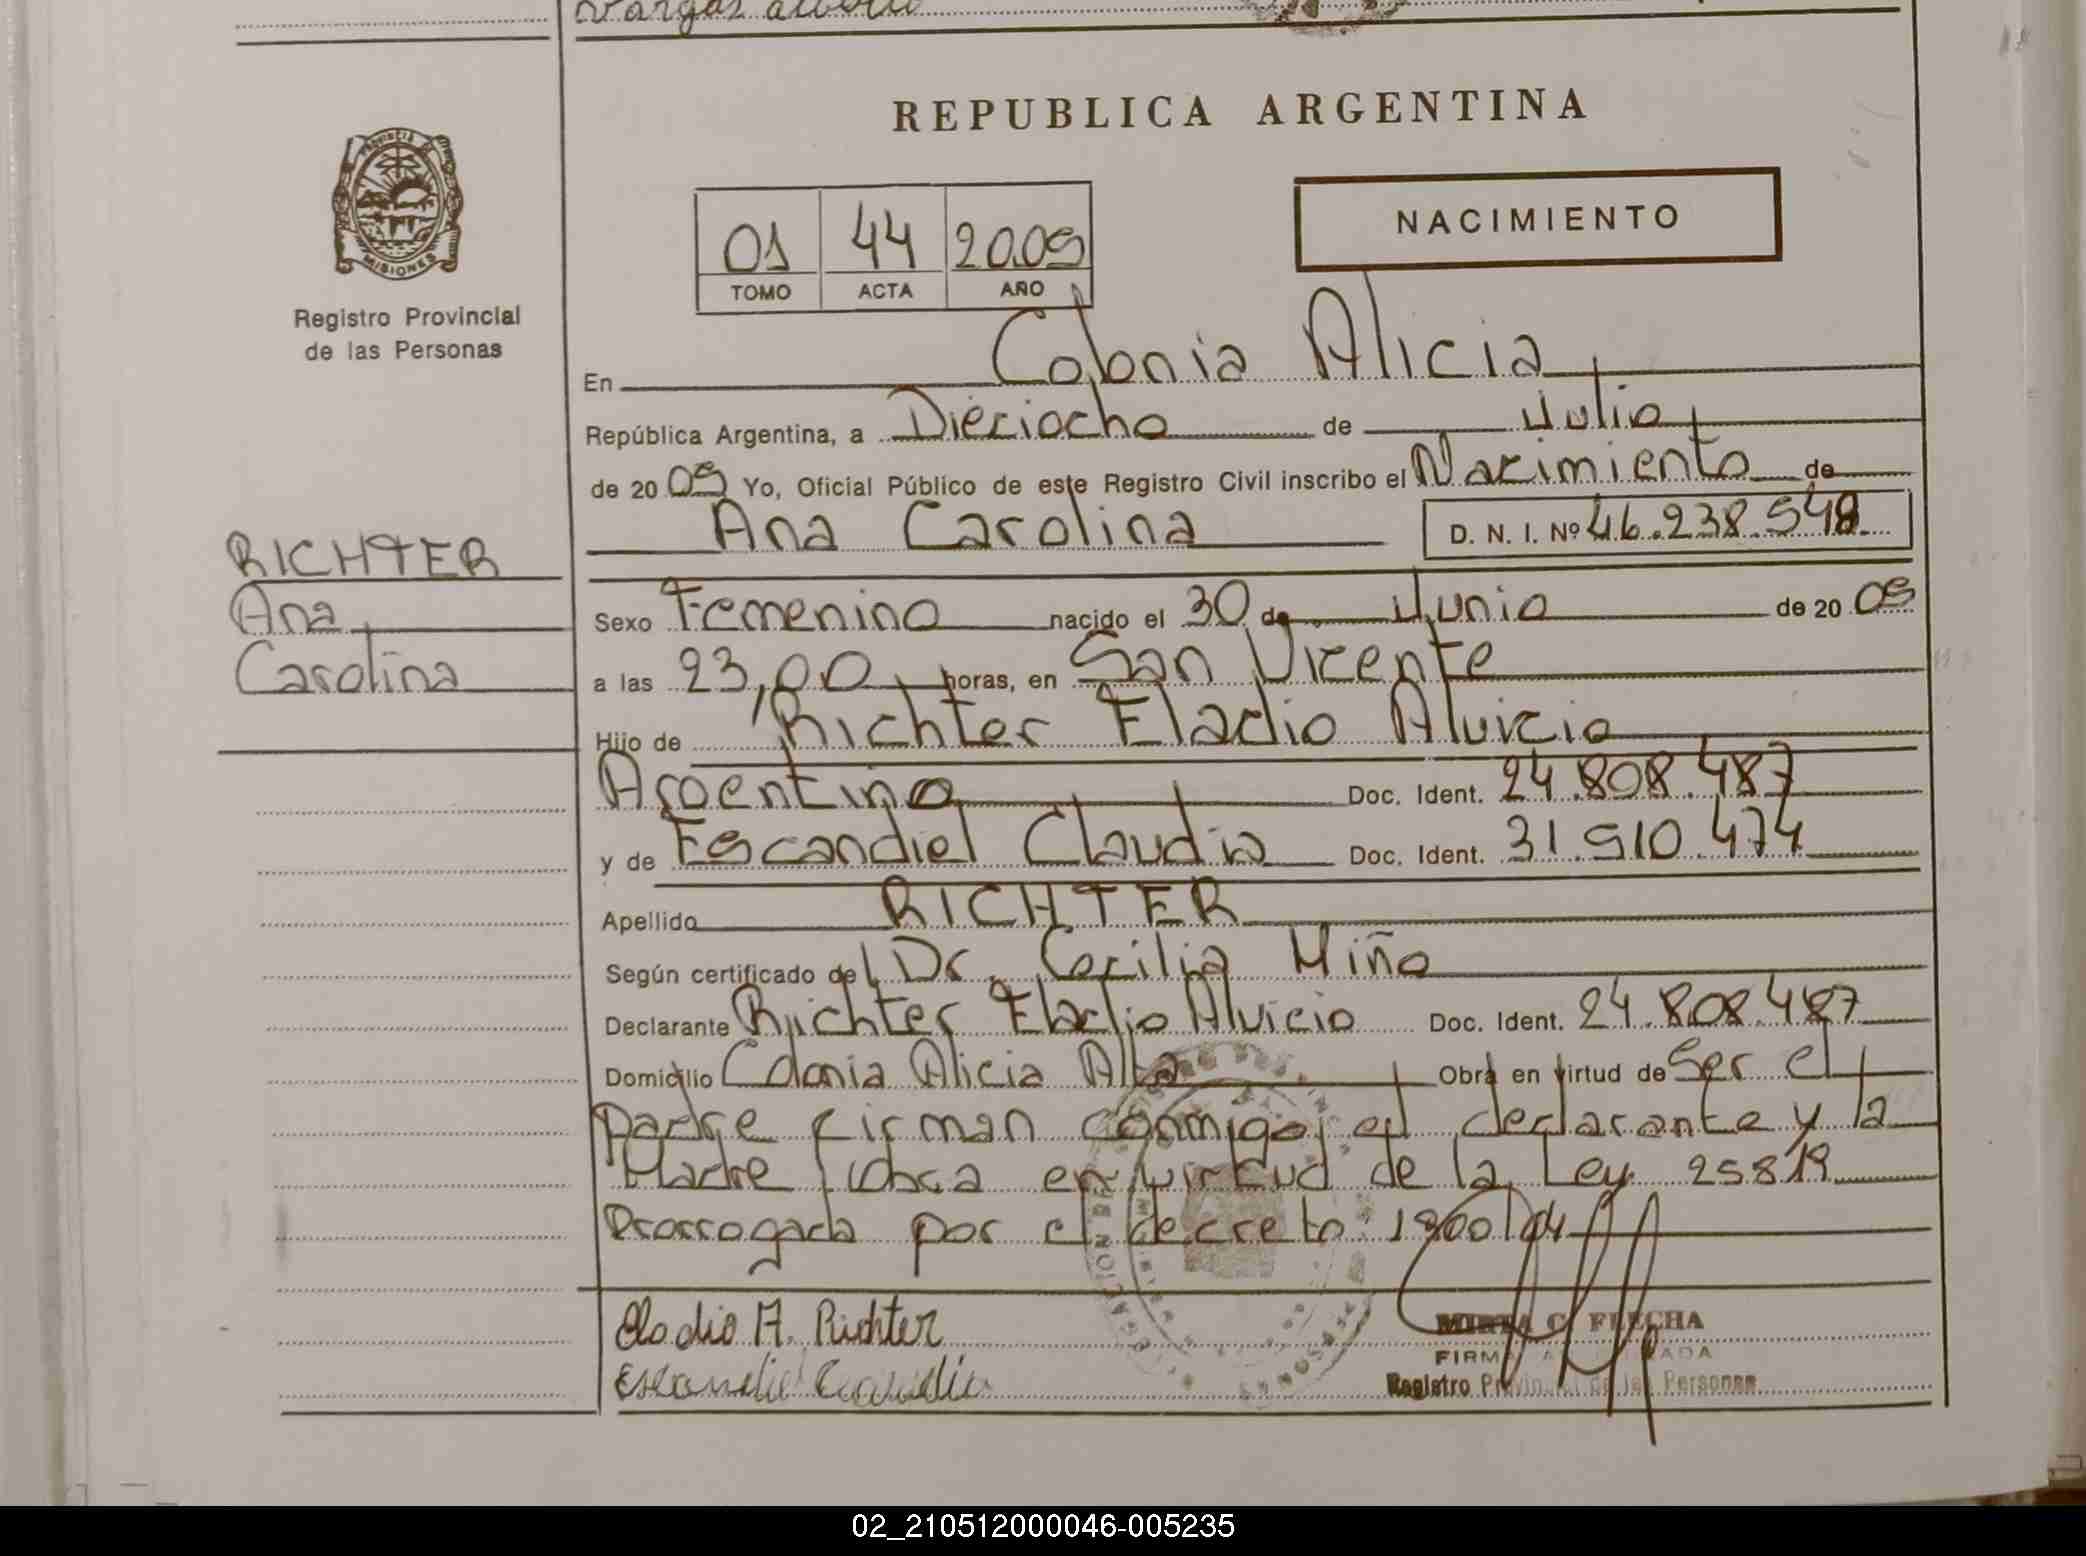 Vargas Alberto
REPUBLICA ARGENTINA
PROVINCIA DE
MISIONES
Registro Provincial
de las Personas
01 44 2009
TOMO ACTA AÑO
NACIMIENTO
En Colonia Alicia
República Argentina, a Dieciocho de Julio
de 20 09 Yo, Oficial Público de este Registro Civil inscribo el Nacimiento de
Ana Carolina D. N. I. Nº 46.238.548
RICHTER
Ana
Carolina
Sexo Femenino nacido el 30 de Junio de 20 09
a las 23,00 horas, en San Vicente
Hijo de Richter Eladio Alvicio
Argentino Doc. Ident. 24.808.487
y de Escandiel Claudia Doc. Ident. 31.510.474
Apellido RICHTER
Según certificado del Dr. Cecilia Miño
Declarante Richter Eladio Alvicio Doc. Ident. 24.808.487
Domicilio Colonia Alicia Alta Obra en virtud de Ser el
Padre firman conmigo el declarante y la
Madre, Obra en virtud de la Ley 25819
Prorrogada por el decreto: 1900/04
Eladio A. Richter
Escandiel Claudia
MIRTA C. FLECHA
FIRMA
Registro Provincial de las Personas
02_210512000046-005235